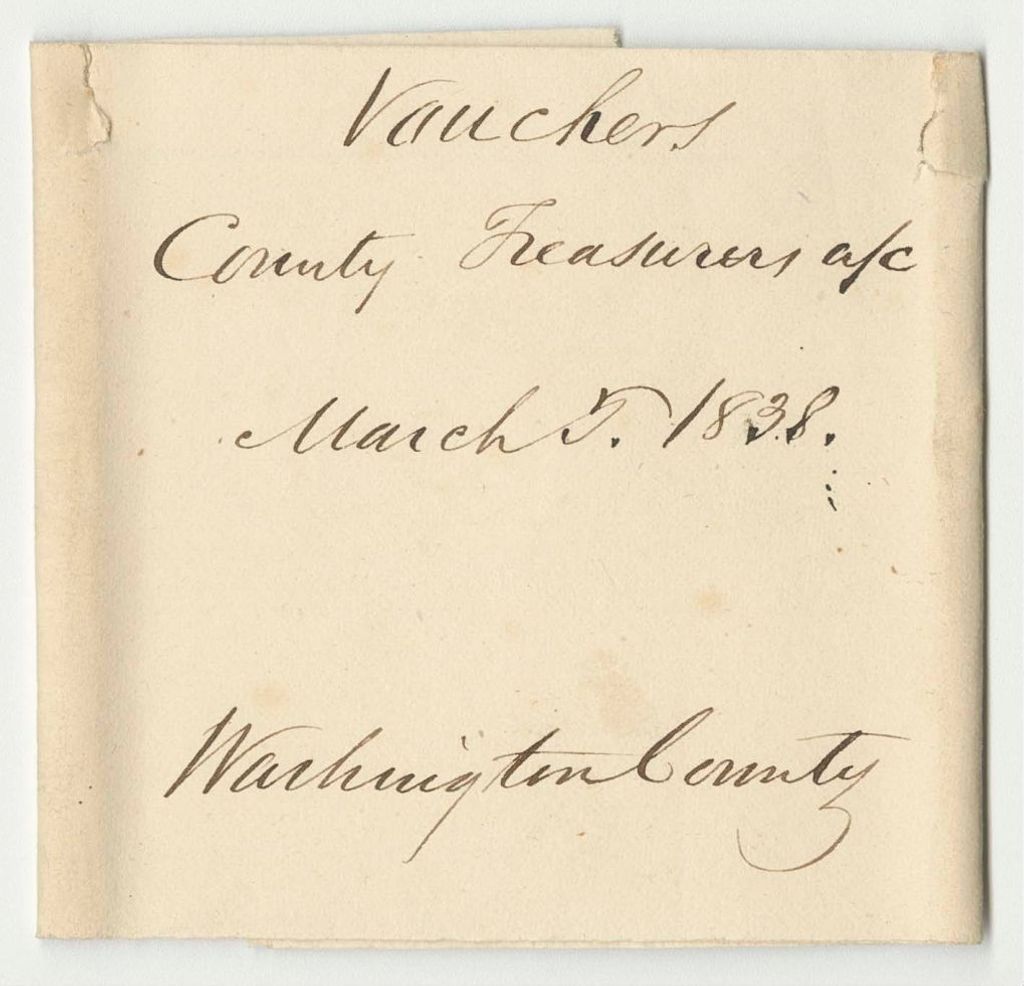 Vouchers
County Treasurers a/c
March T. 1838.
Washington County